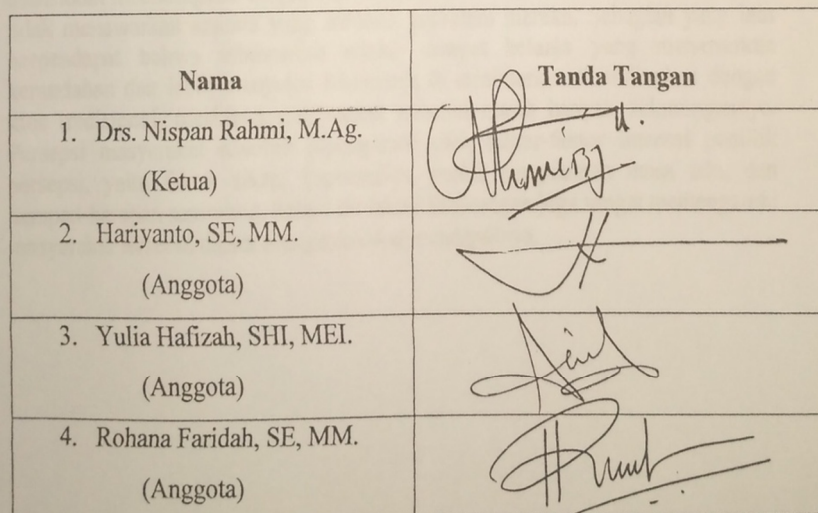 Nama Tanda Tangan
1. Drs. Nispan Rahmi, M.Ag.
(Ketua)
2. Hariyanto, SE, MM.
(Anggota)
3. Yulia Hafizah, SHI, MEI.
(Anggota)
4. Rohana Faridah, SE, MM.
(Anggota)